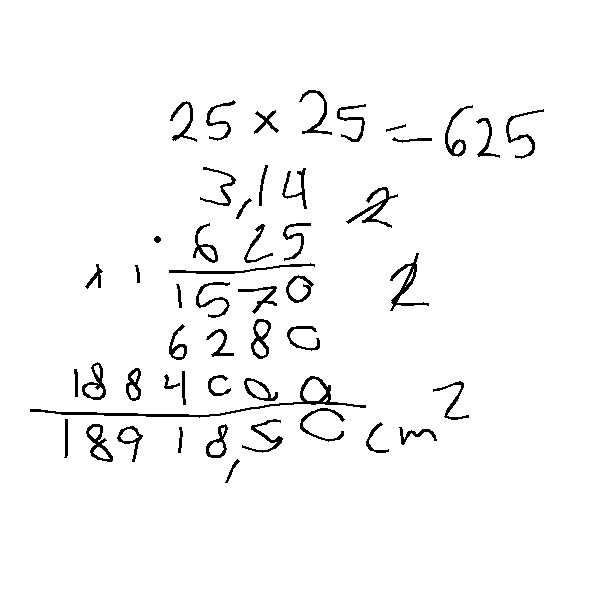 25 × 25 = 625
3,14 2
· 625
1 1 2
1570
6280
1884000
18918,50 cm²